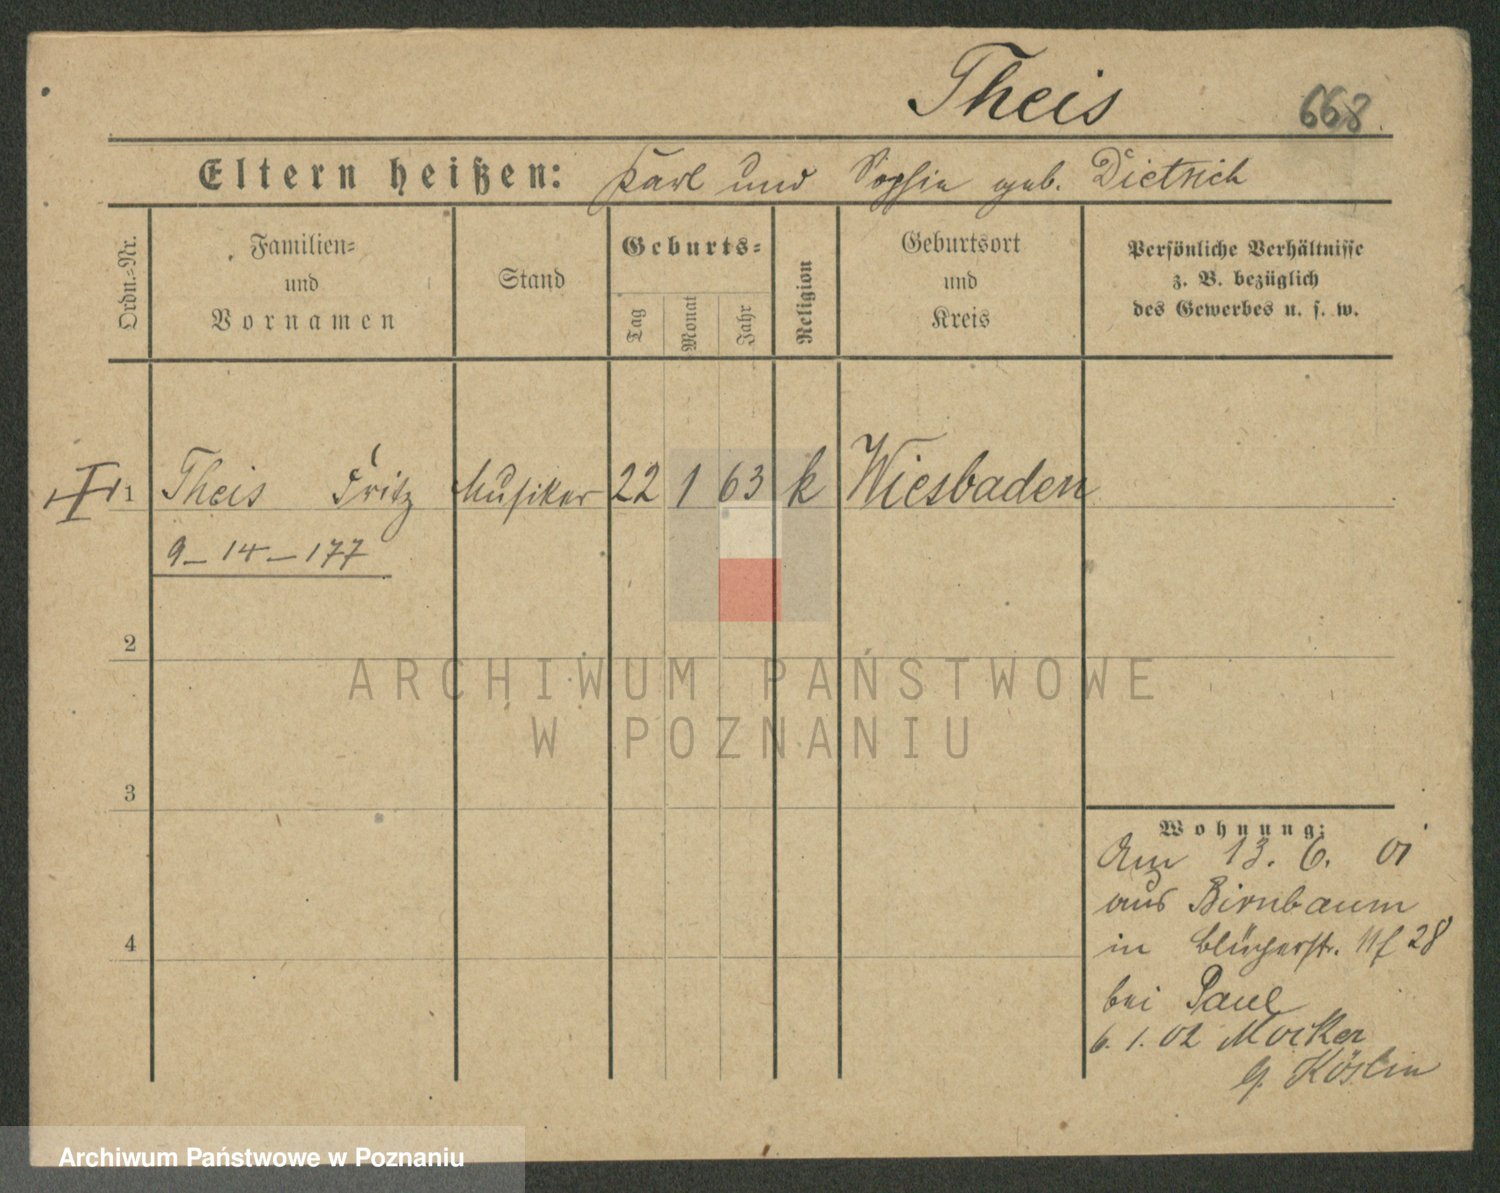 Theis 668
Eltern heißen: Karl und Sophie geb. Dietrich
Ordn.=Nr.
Familien=
und
Vornamen
Stand
Geburts=
Tag
Monat
Jahr
Religion
Geburtsort
und
Kreis
Persönliche Verhältnisse
z. B. bezüglich
des Gewerbes u. s. w.
1 Theis Fritz Musiker 22 1 63 k Wiesbaden
9–14–177
2
ARCHIWUM PAŃSTWOWE
W POZNANIU
3
Wohnung:
Am 13. 6. 01
aus Birnbaum
in Blücherstr. 28
bei Paul
6. 1. 02 Mocker
Köslin
4
Archiwum Państwowe w Poznaniu